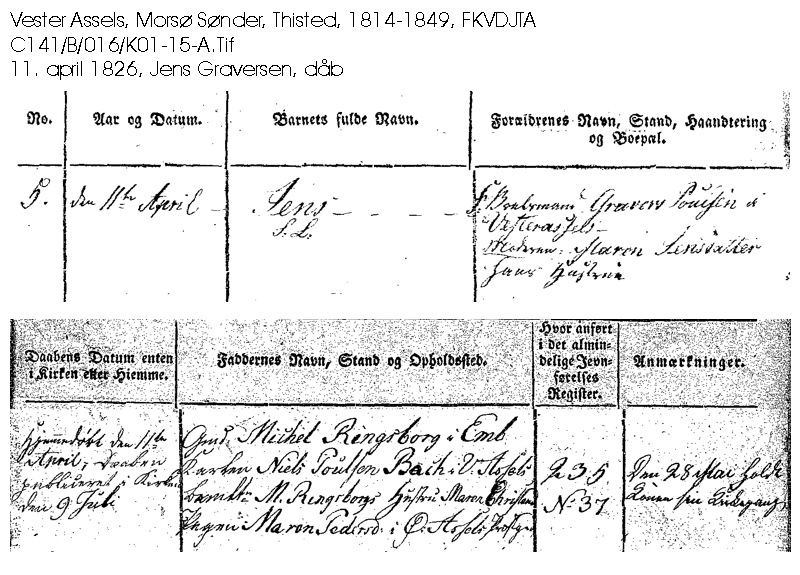 Vester Assels, Morsø Sønder, Thisted, 1814-1849, FKVDJTA
C141/B/016/K01-15-A.Tif
11. april 1826, Jens Graversen, dåb
No.
Aar og Datum.
Barnets fulde Navn.
Forældrenes Navn, Stand, Haandtering
og Boepæl.
5.
den 11te April
Jens
S. L.
F. Gravers Poulsen i
Vesterassels
Moderen: Maren Jensdatter
hans Hustrue
Daabens Datum enten
i Kirken eller Hiemme.
Faddernes Navn, Stand og Opholdssted.
Hvor anført
i det almin-
delige Jevn-
førelses
Register.
Anmærkninger.
Hjemmedøbt den 11te
April, Daaben
publiceret i Kirken
den 9 Juli
Gmd. Michel Ringsborg i Emb
Karlen Niels Poulsen Bach i V: Assels
bemldte M. Ringsborgs Hustru Maren Christens
Pigen Maren Pedersd: i Ø: Assels
235
No 37
Den 28 Mai holdt
Konen sin Kirkegang